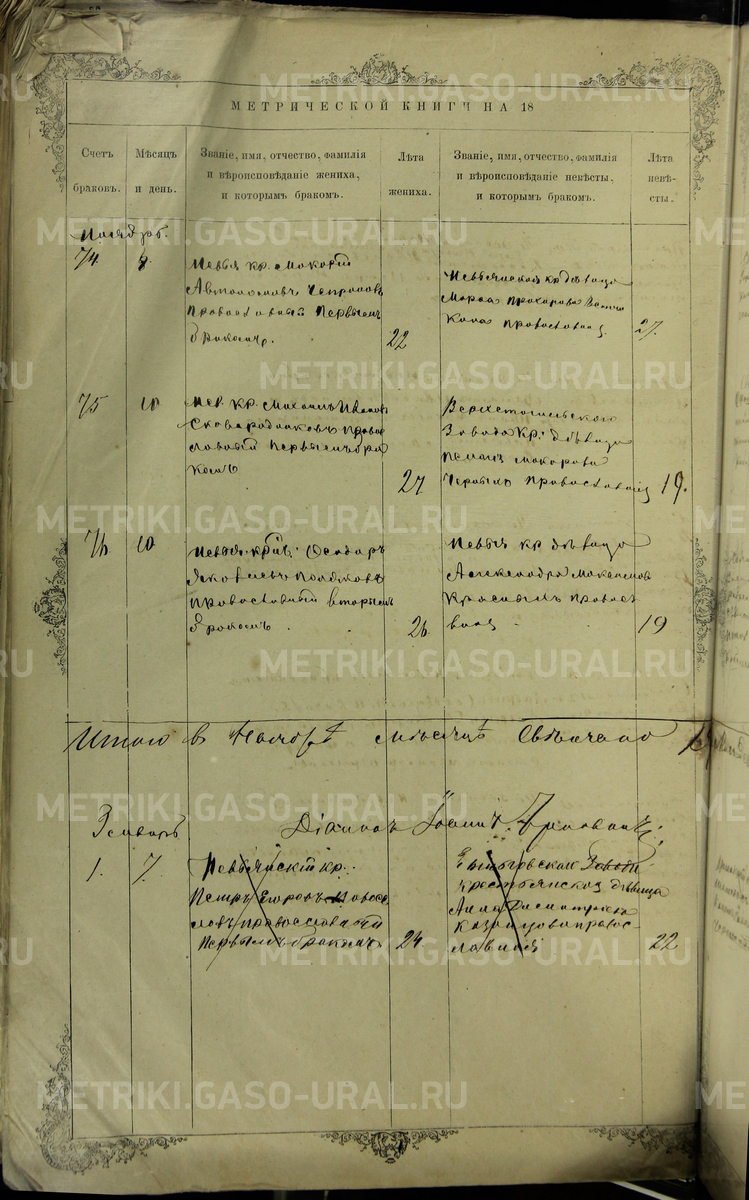 МЕТРИЧЕСКОЙ КНИГИ НА 18
Счетъ браковъ.
Мѣсяцъ и день.
Званіе, имя, отчество, фамилія
и вѣроисповѣданіе жениха,
и которымъ бракомъ.
Лѣта жениха.
Званіе, имя, отчество, фамилія
и вѣроисповѣданіе невѣсты,
и которымъ бракомъ.
Лѣта невѣсты.
Ноябрь.
74 8
Невья кр. Макарій
Православный Первымъ
бракомъ. 22
Невьянская кр. дѣвица
Марѳа Прохорова
Православная 27.
75 10
Нев. кр. Михаилъ Иванов
Сковородниковъ Право
славный Первымъ бра
комъ 27
Верхтагильского
Завода кр. дѣвица
Макарова
Черныхъ Православная 19.
76 10
Невья. кр. Ѳеодоръ
Яковлевъ Поляковъ
православный вторымъ
бракомъ. 26
Невья кр дѣвица
Александра Максимов
Красныхъ Правос
вная 19
Итого в Ноябрѣ мѣсяцѣ Свѣнчано
Январь
Діаконъ Іоаннъ
1. 7.
Невьянскій кр.
Петръ Егоровъ
православный
Первымъ бракомъ 24
Завода
крестьянская дѣвица
Анна Димитріева
Казанцова правос-
лавная 22
METRIKI.GASO-URAL.RU